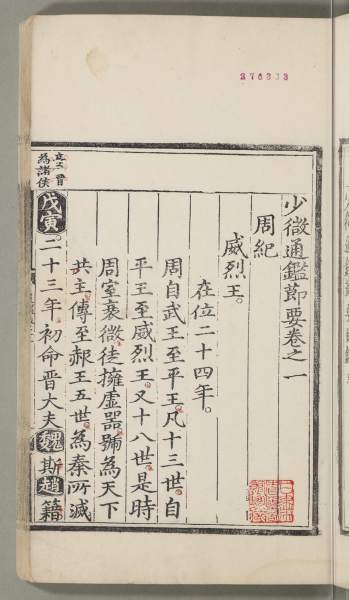 少微通鑑節要卷之一
周紀
威烈王。
在位二十四年。
周自武王至平王凡十三世自
平王至威烈王又十八世是時
周室衰微徒擁虛器號為天下
共主傳至赧王五世為秦所滅
戊寅。二十三年。初命晉大夫魏斯趙籍
為諸侯